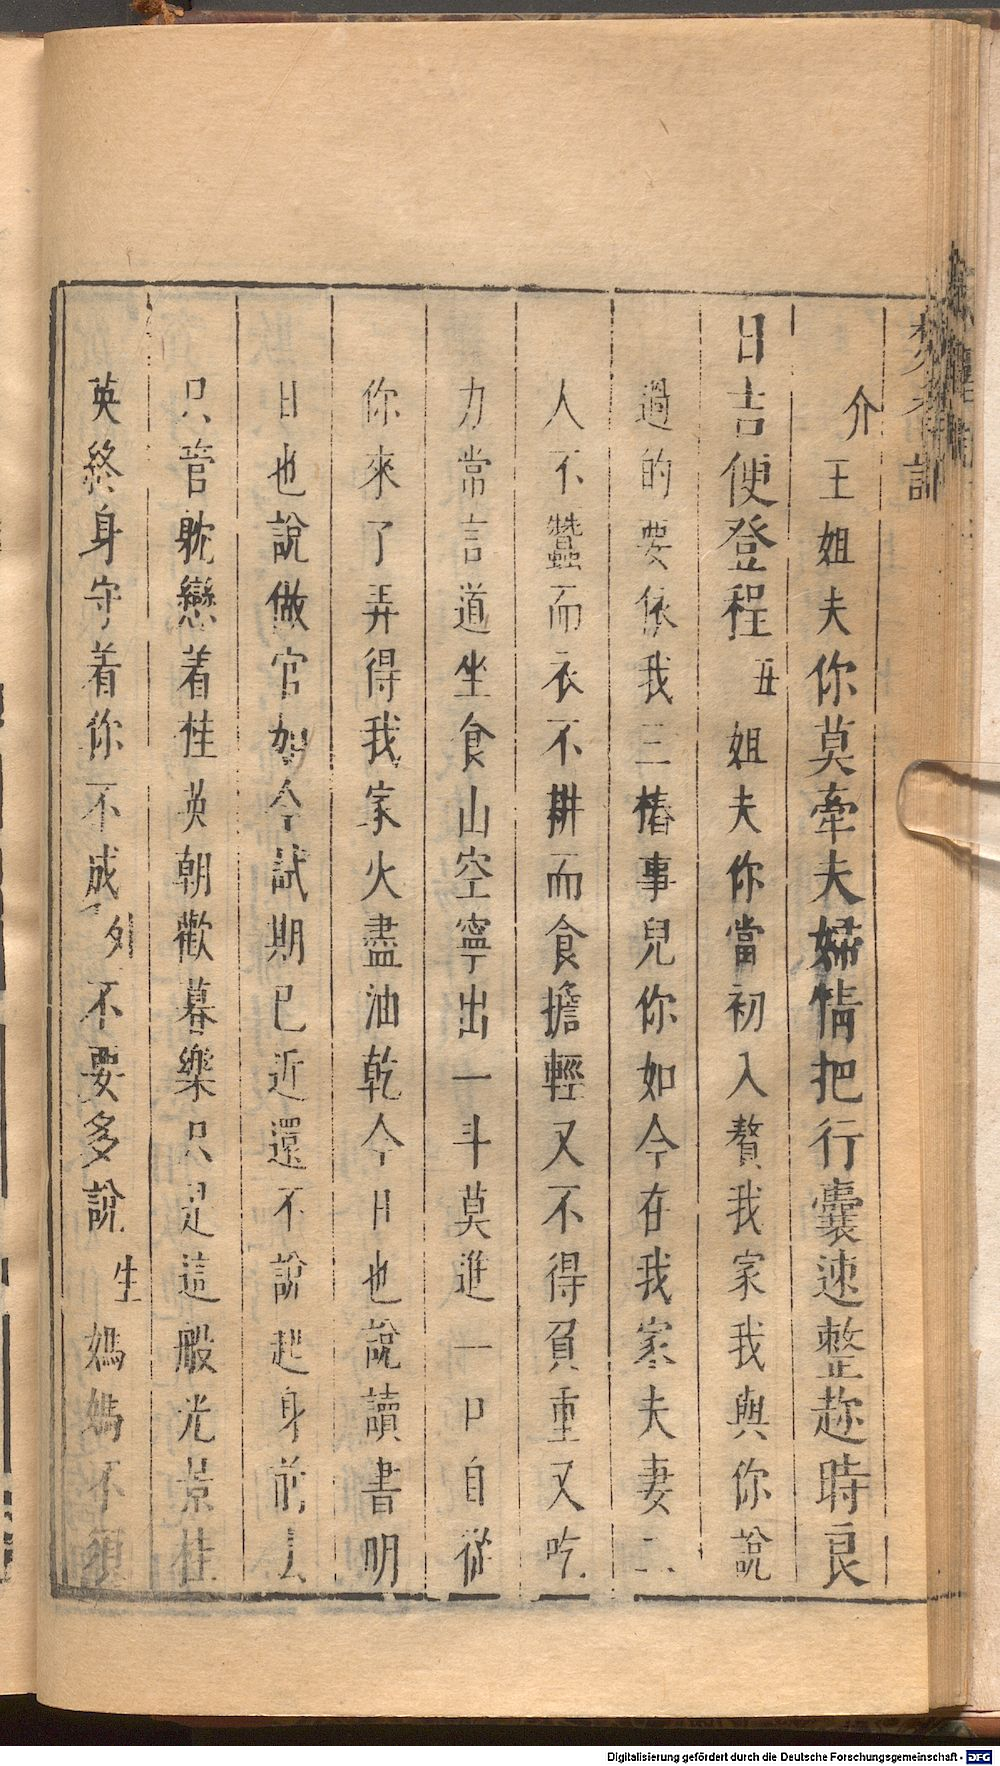 焚香記
介王姐夫你莫牽夫婦情把行囊速整趂時良
日吉便登程丑姐夫你當初入贅我家我與你說
過的要依我三樁事兒你如今在我家夫妻二
人不蠶而衣不耕而食擔輕又不得負重又吃
力常言道坐食山空寧出一斗莫進一口自從
你來了弄得我家火盡油乾今日也說讀書明
日也說做官如今試期已近還不說起身前去
只管躭戀着桂英朝歡暮樂只是這般光景桂
英終身守着你不成外不要多說生媽媽不須
Digitalisierung gefördert durch die Deutsche Forschungsgemeinschaft - DFG